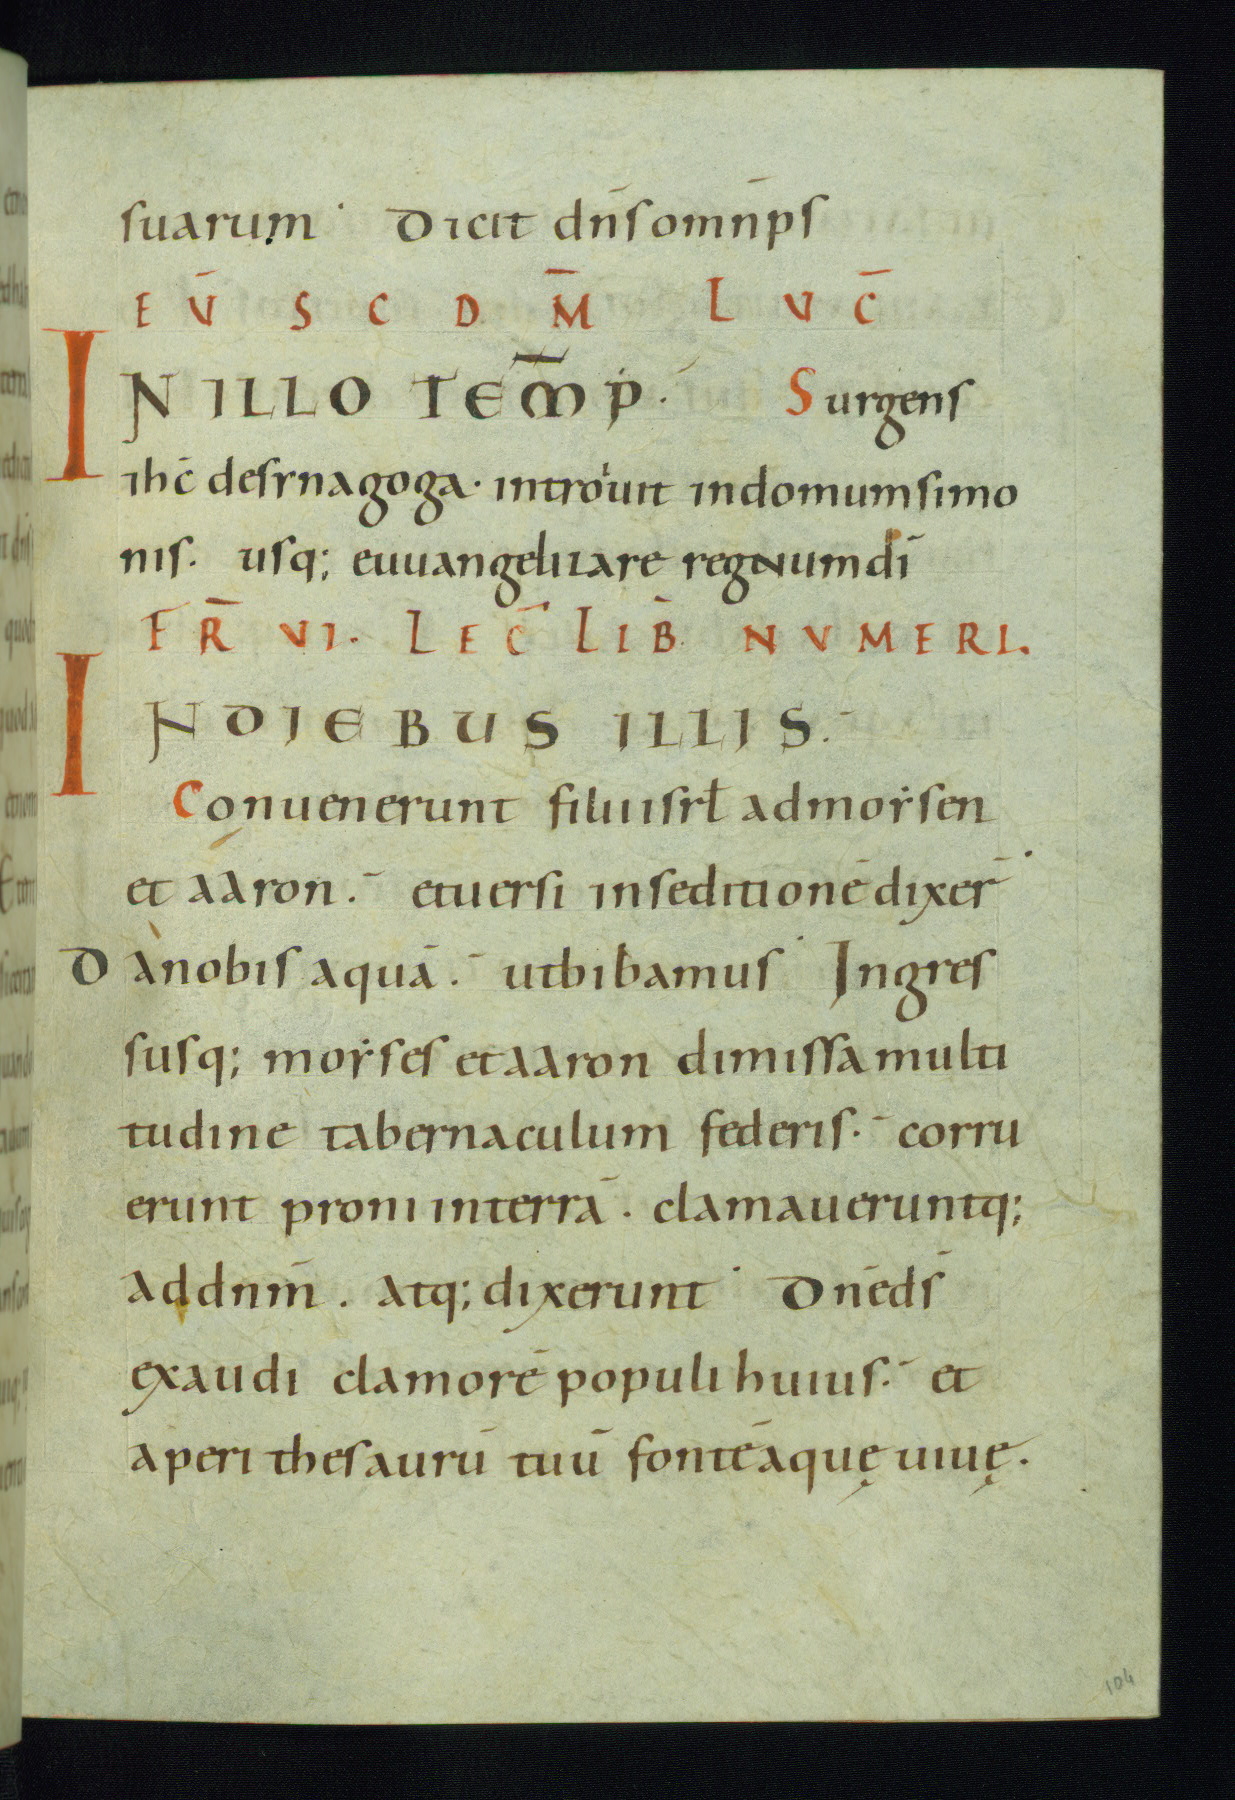 suarum· Dicit dn̄s omn̄ps
EṼ SCD M̄ LVC̄
IN ILLO TEM̄P·́ Surgens
ihc̄ desynagoga· introiuit indomumsimo
nis. usq; euuangelizare regnumdī
FR̄ VI. LEC̄ LIB̄ NVMERI.
IN DIEBUS ILLIS.
Conuenerunt filii isrł ad moẏsen
et aaron. etuersi inseditionē dixer̄·
Da nobis aquā. utbibamus· Ingres
susq; moẏses et aaron dimissa multi
tudine tabernaculum federis. corru
erunt proni interrā. clamaueruntq;
addnm̄. atq; dixerunt· Dn̄e ds̄
exaudi clamorē populi huius. et
aperi thesaurū tuū fontē aquę uiuę.
104